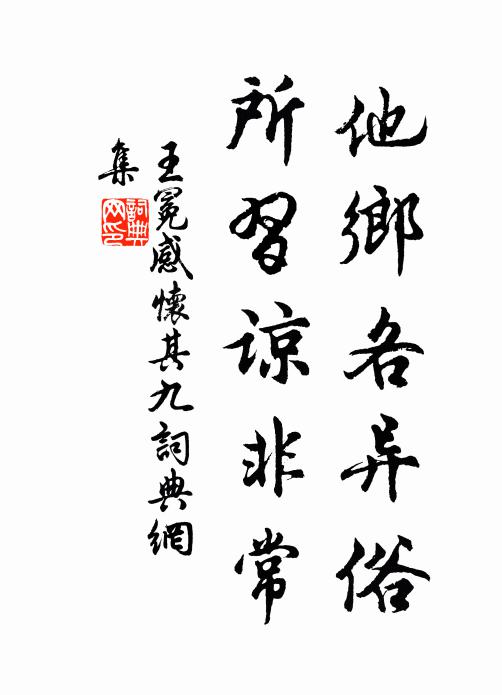 他鄉各异俗
所習諒非常
王冕感懷其九詞典網
集
詞典
网印